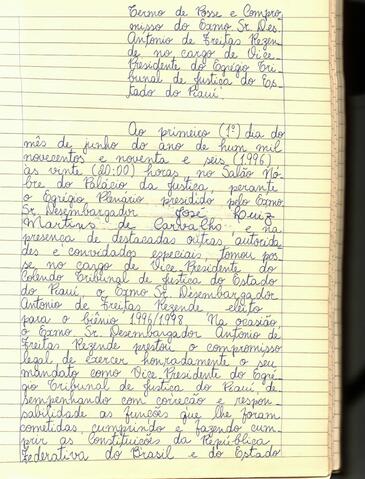 Termo de Posse e Compro-
misso do Exmo Sr. Des.
Antonio de Freitas Rezen-
de no cargo de Vice-
Presidente do Egrégio Tri-
bunal de Justiça do Es-
tado do Piauí.
Ao primeiro (1º) dia do
mês de junho do ano de hum mil
novecentos e noventa e seis (1996)
às vinte (20:00) horas, no Salão No-
bre do Palácio da Justiça, perante
o Egrégio Plenário presidido pelo Exmo
Sr. Desembargador José Luiz
Martins de Carvalho e na
presença de destacadas outras autorida-
des e convidados especiais, tomou pos-
se no cargo de Vice-Presidente do
Colendo Tribunal de Justiça do Estado
do Piauí, o Exmo Sr. Desembargador
Antonio de Freitas Rezende eleito
para o biênio 1996/1998. Na ocasião,
o Exmo Sr. Desembargador Antonio de
Freitas Rezende prestou o compromisso
legal de exercer honradamente o seu
mandato como Vice-Presidente do Egré-
gio Tribunal de Justiça do Piauí de-
sempenhando com correção e respon-
sabilidade as funções que lhe foram
cometidas, cumprindo e fazendo cum-
prir as Constituições da República
Federativa do Brasil e do Estado